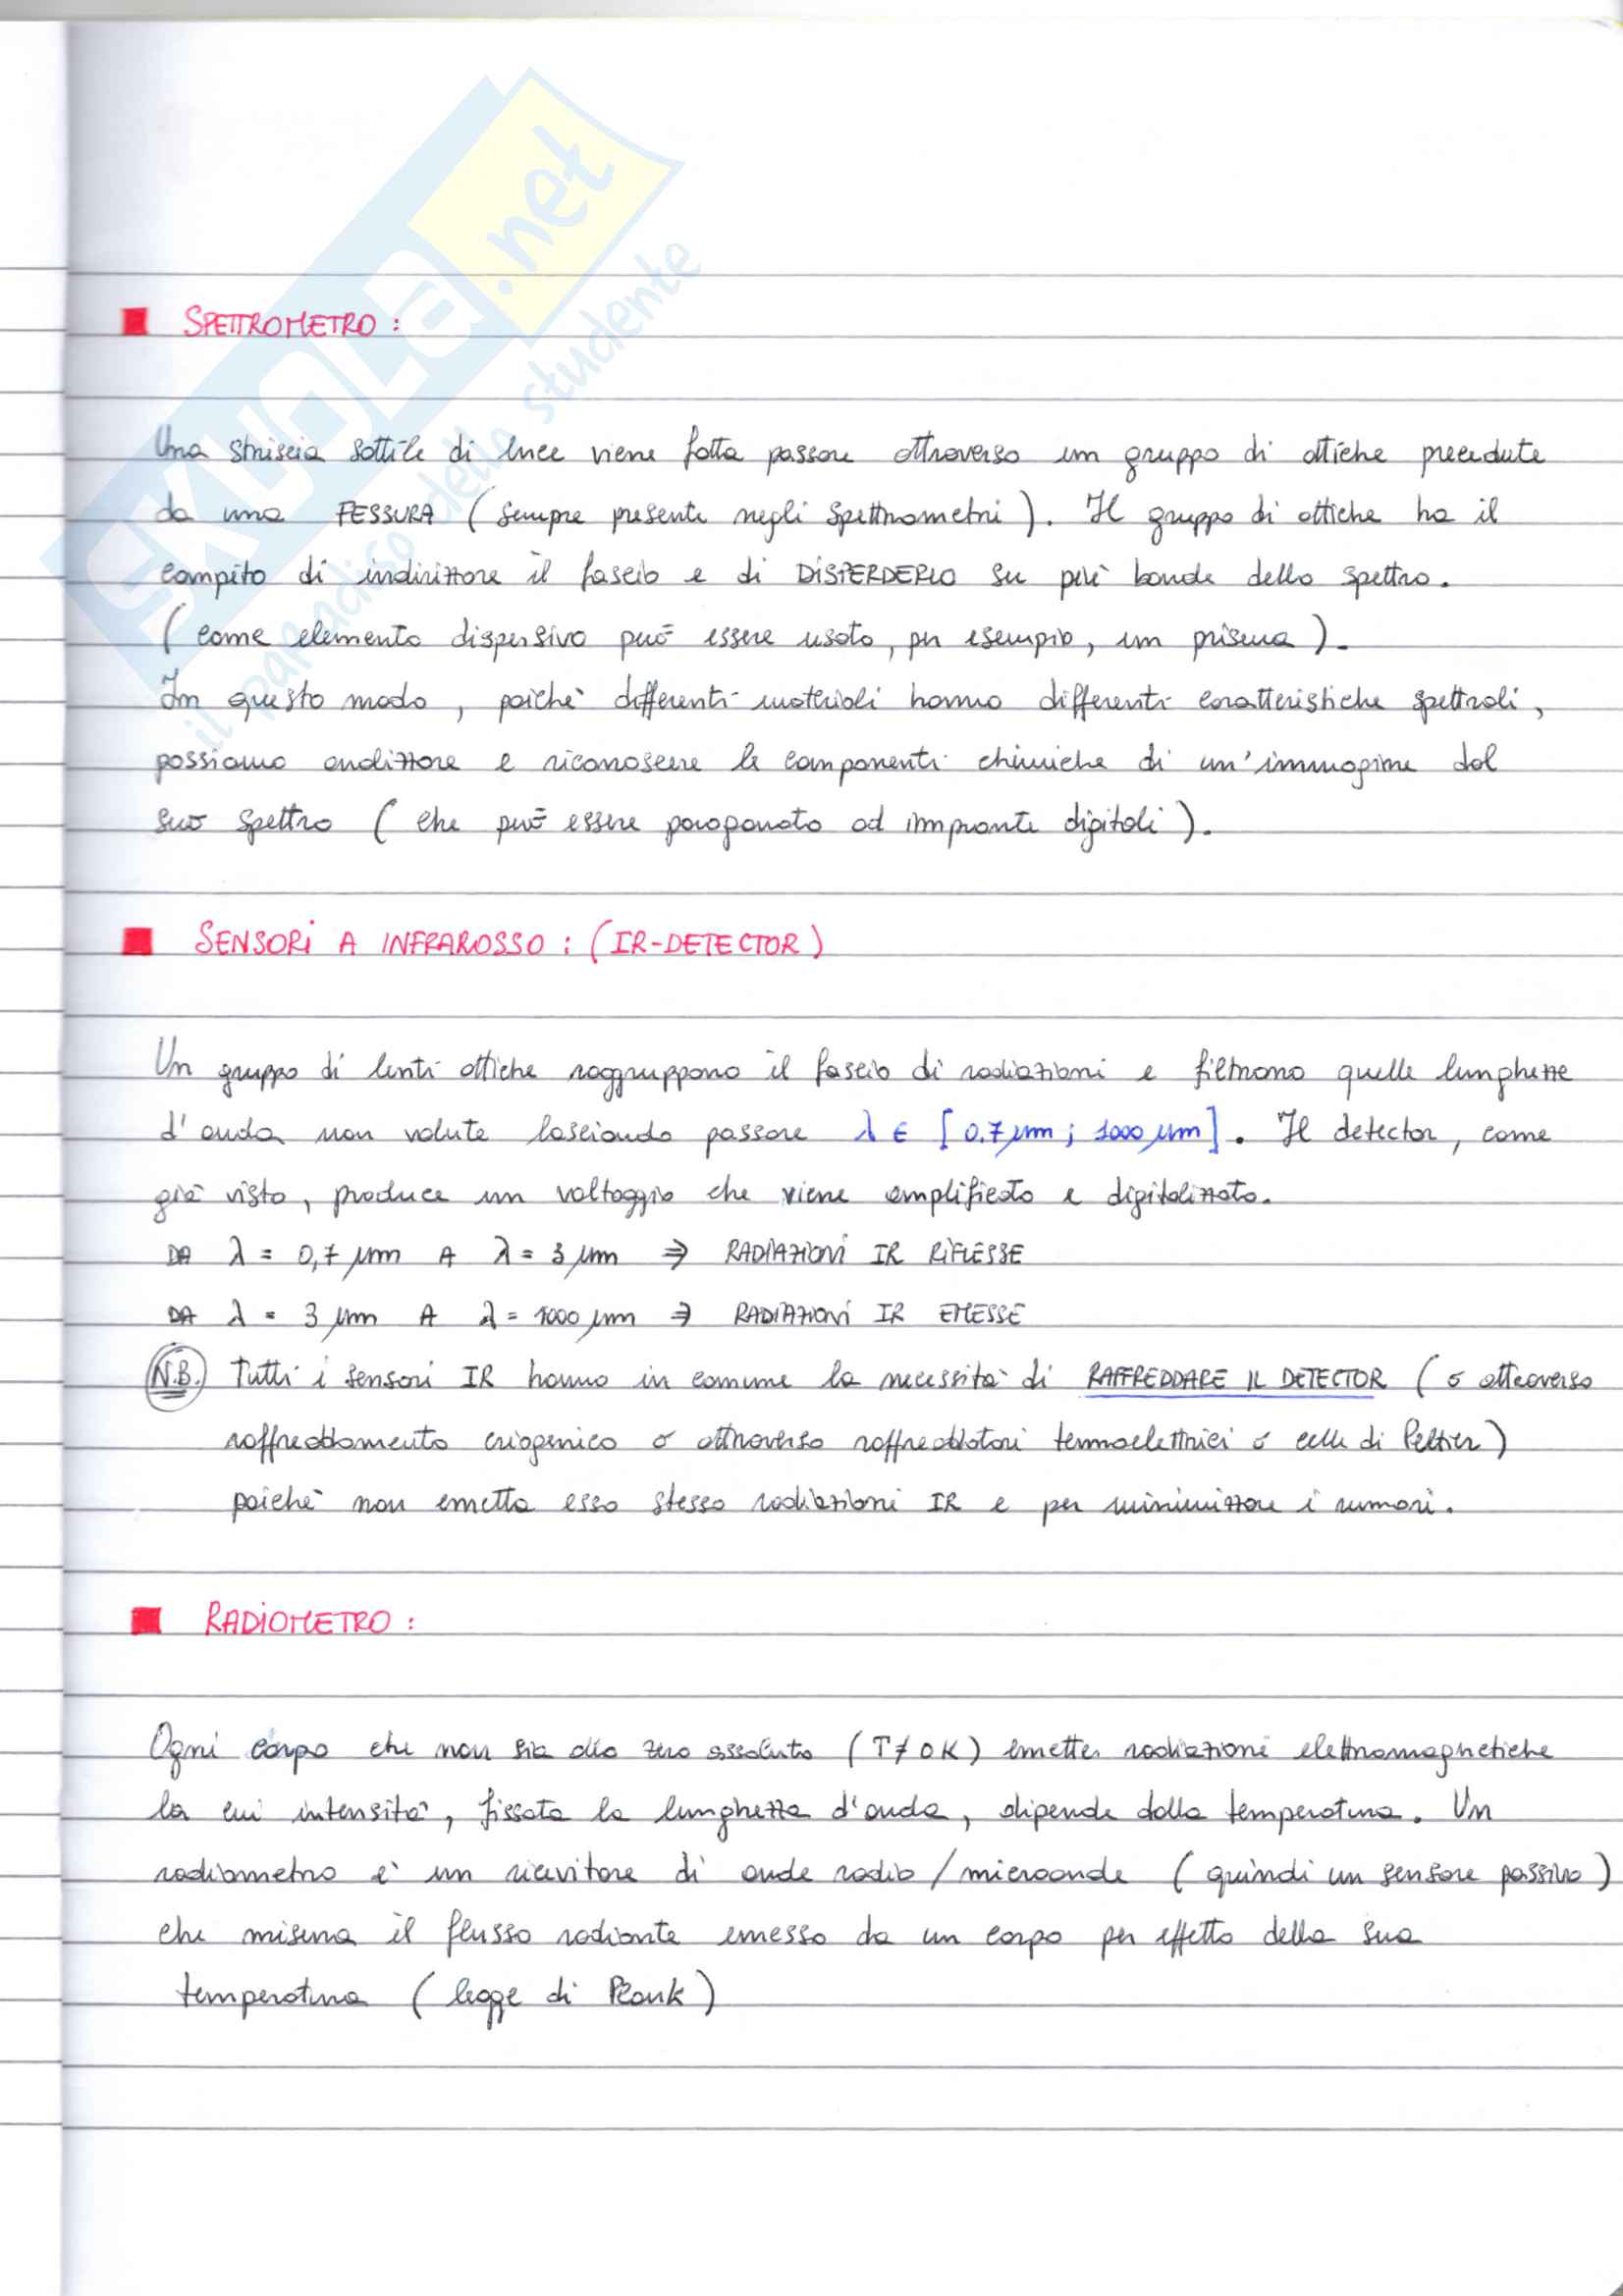 SKUOLA.net
il paradiso dello studente
SPETTROMETRO :
Una striscia sottile di luce viene fatta passare attraverso un gruppo di ottiche precedute
da una FESSURA ( sempre presente negli spettrometri ). Il gruppo di ottiche ha il
compito di indirizzare il fascio e di DISPERDERLO su più bande dello spettro.
( come elemento dispersivo può essere usato, per esempio, un prisma ).
In questo modo , poiché differenti materiali hanno differenti caratteristiche spettrali,
possiamo analizzare e riconoscere le componenti chimiche di un'immagine dal
suo spettro ( che può essere paragonato ad impronte digitali ).
SENSORI A INFRAROSSO : ( IR-DETECTOR )
Un gruppo di lenti ottiche raggruppano il fascio di radiazioni e filtrano quelle lunghezze
d'onda non volute lasciando passare λ ∈ [ 0.7 μm ; 1000 μm ]. Il detector, come
già visto, produce un voltaggio che viene amplificato e digitalizzato.
DA λ = 0,7 μm A λ = 3 μm ⇒ RADIAZIONI IR RIFLESSE
DA λ = 3 μm A λ = 1000 μm ⇒ RADIAZIONI IR EMESSE
N.B. Tutti i sensori IR hanno in comune la necessità di RAFFREDDARE IL DETECTOR ( o attraverso
raffreddamento criogenico o attraverso raffreddatori termoelettrici o celle di Peltier )
poiché non emetta esso stesso radiazioni IR e per minimizzare i rumori.
RADIOMETRO :
Ogni corpo che non sia allo zero assoluto ( T ≠ 0 K ) emette radiazioni elettromagnetiche
la cui intensità, fissata la lunghezza d'onda, dipende dalla temperatura. Un
radiometro è un ricevitore di onde radio / microonde ( quindi un sensore passivo )
che misura il flusso radiante emesso da un corpo per effetto della sua
temperatura ( legge di Plank )